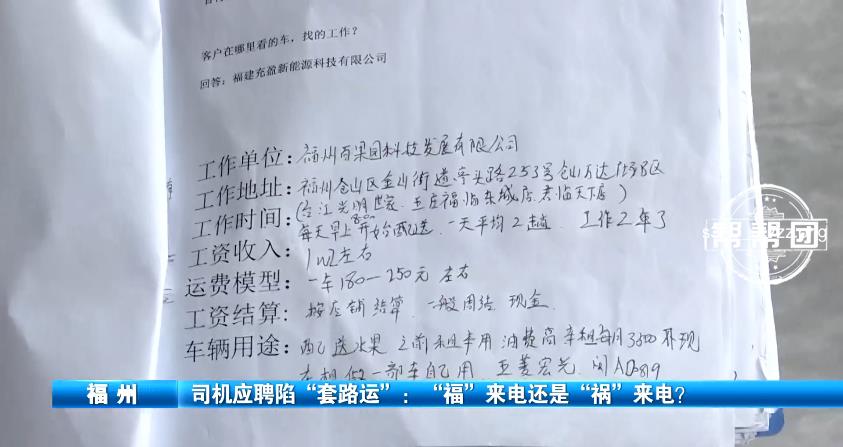 客户在哪里看的车，找的工作？
回答：福建充盈新能源科技有限公司
工作单位：福州百果园科技发展有限公司
工作地址：福州仓山区金山街道亭头路253号仓山万达
(台江光明世家.王庄福临东城店.君临天下店)
工作时间：每天早上8:00开始配送，一天平均2趟，工作2年了
工资收入：1W2左右
运费模型：一车180—250元左右
工资结算：按店铺结算，一般周结 现金.
车辆用途：送水果 之前租车用 油费高 车租每月3500 不现
做一部车自己用
帮帮团
福州 司机应聘陷“套路运”：“福”来电还是“祸”来电？